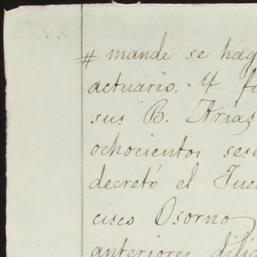 # mande se hag
actuario. Y f
sus B. Arias
ochocientos ses
decretó el Jue
cisco Osorno
anteriores dili